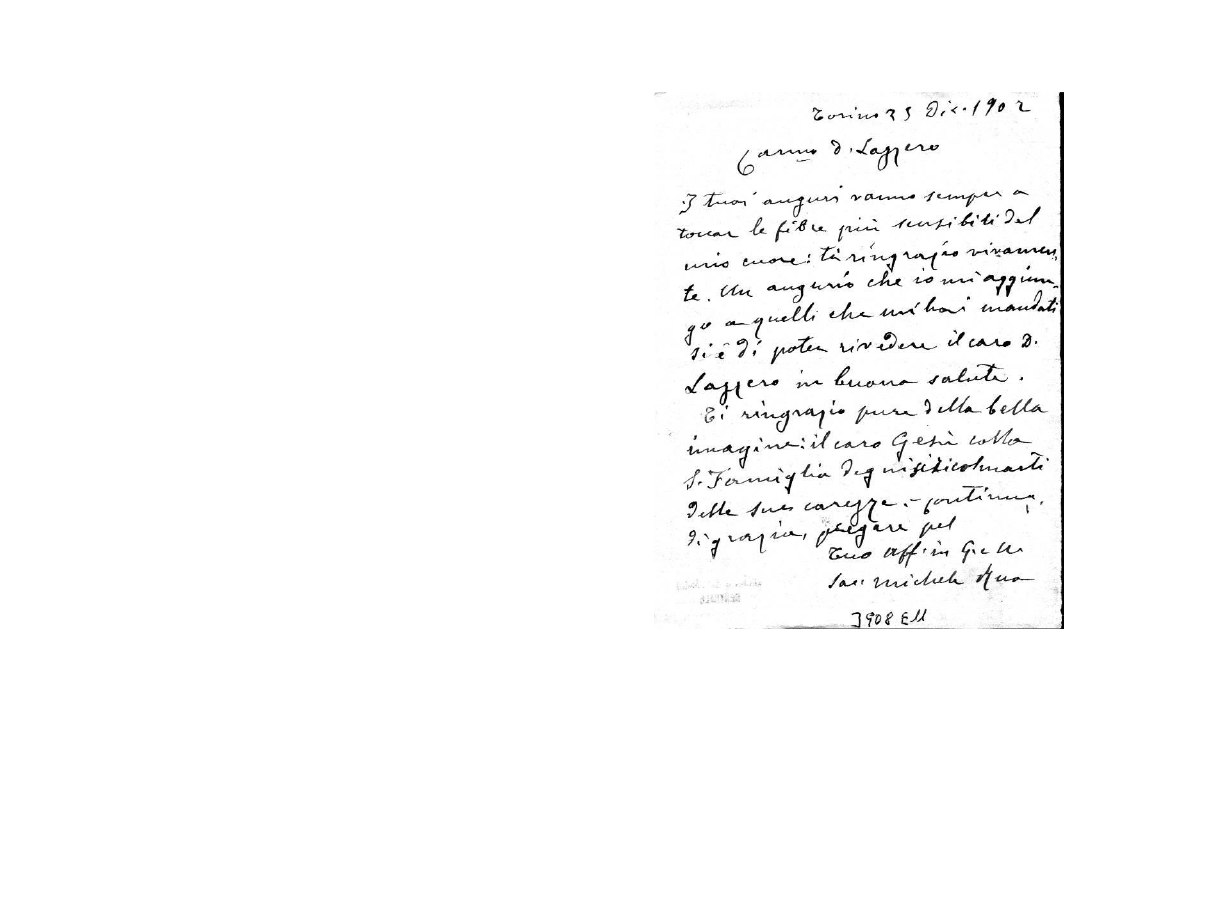 Torino 25 Dic. 1902
Carmo D. Lazzero
I tuoi auguri vanno sempre a
toccar le fibre più sensibili del
mio cuore: ti ringrazio vivamen-
te. Un augurio che io mi aggiun-
go a quelli che mi hai mandati
si è di poter rivedere il caro D.
Lazzero in buona salute.
Ti ringrazio pure della bella
imagine: il caro Gesù colla
S. Famiglia degnisi di colmarti
delle sue carezze. - Continua,
di grazia, pregare pel
Tuo aff. in G. e M.
Sac. Michele Rua
3908 E11